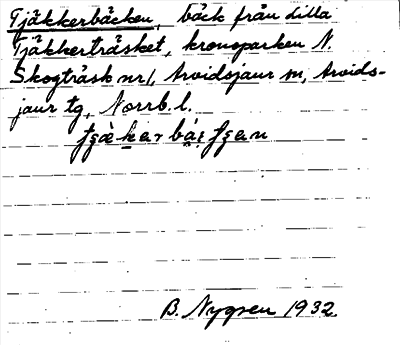 Tjäkkerbäcken, bäck från Lilla
Tjäkkerträsket, kronoparken N.
Skogträsk nr 1, Arvidsjaur sn, Arvids-
jaur tg, Norrb. l.
B. Nygren 1932